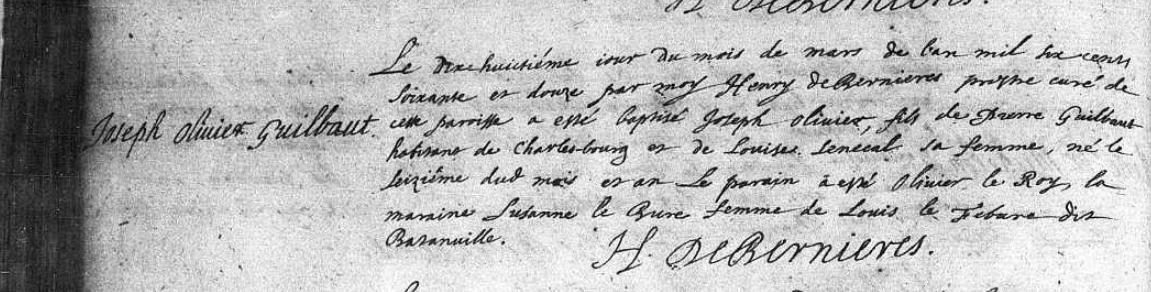 H. DeBernieres.
Le dixe huictiéme iour du mois de mars de l'an mil six cents
soixante et douze par moy Henry de Bernieres prestre curé de
Joseph olivier Guilbaut.
cette paroisse a esté baptisé Joseph olivier, fils de Pierre Guilbaut
habitant de Charles-bourg et de Louise Senecal sa femme, né le
seiziéme dud mois et an Le parain a esté Olivier le Roy, la
maraine Susanne le Bure femme de Louis le Febure dit
Batanville.
H. DeBernieres.